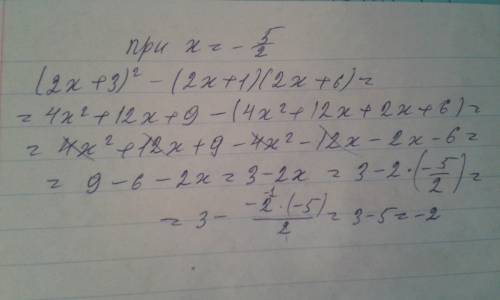 при x = - 5/2
(2x+3)² - (2x+1)(2x+6) =
= 4x² + 12x + 9 - (4x² + 12x + 2x + 6) =
= 4x² + 12x + 9 - 4x² - 12x - 2x - 6 =
= 9 - 6 - 2x = 3 - 2x = 3 - 2 · (-5/2) =
= 3 - -2¹ · (-5)/2 = 3 - 5 = -2